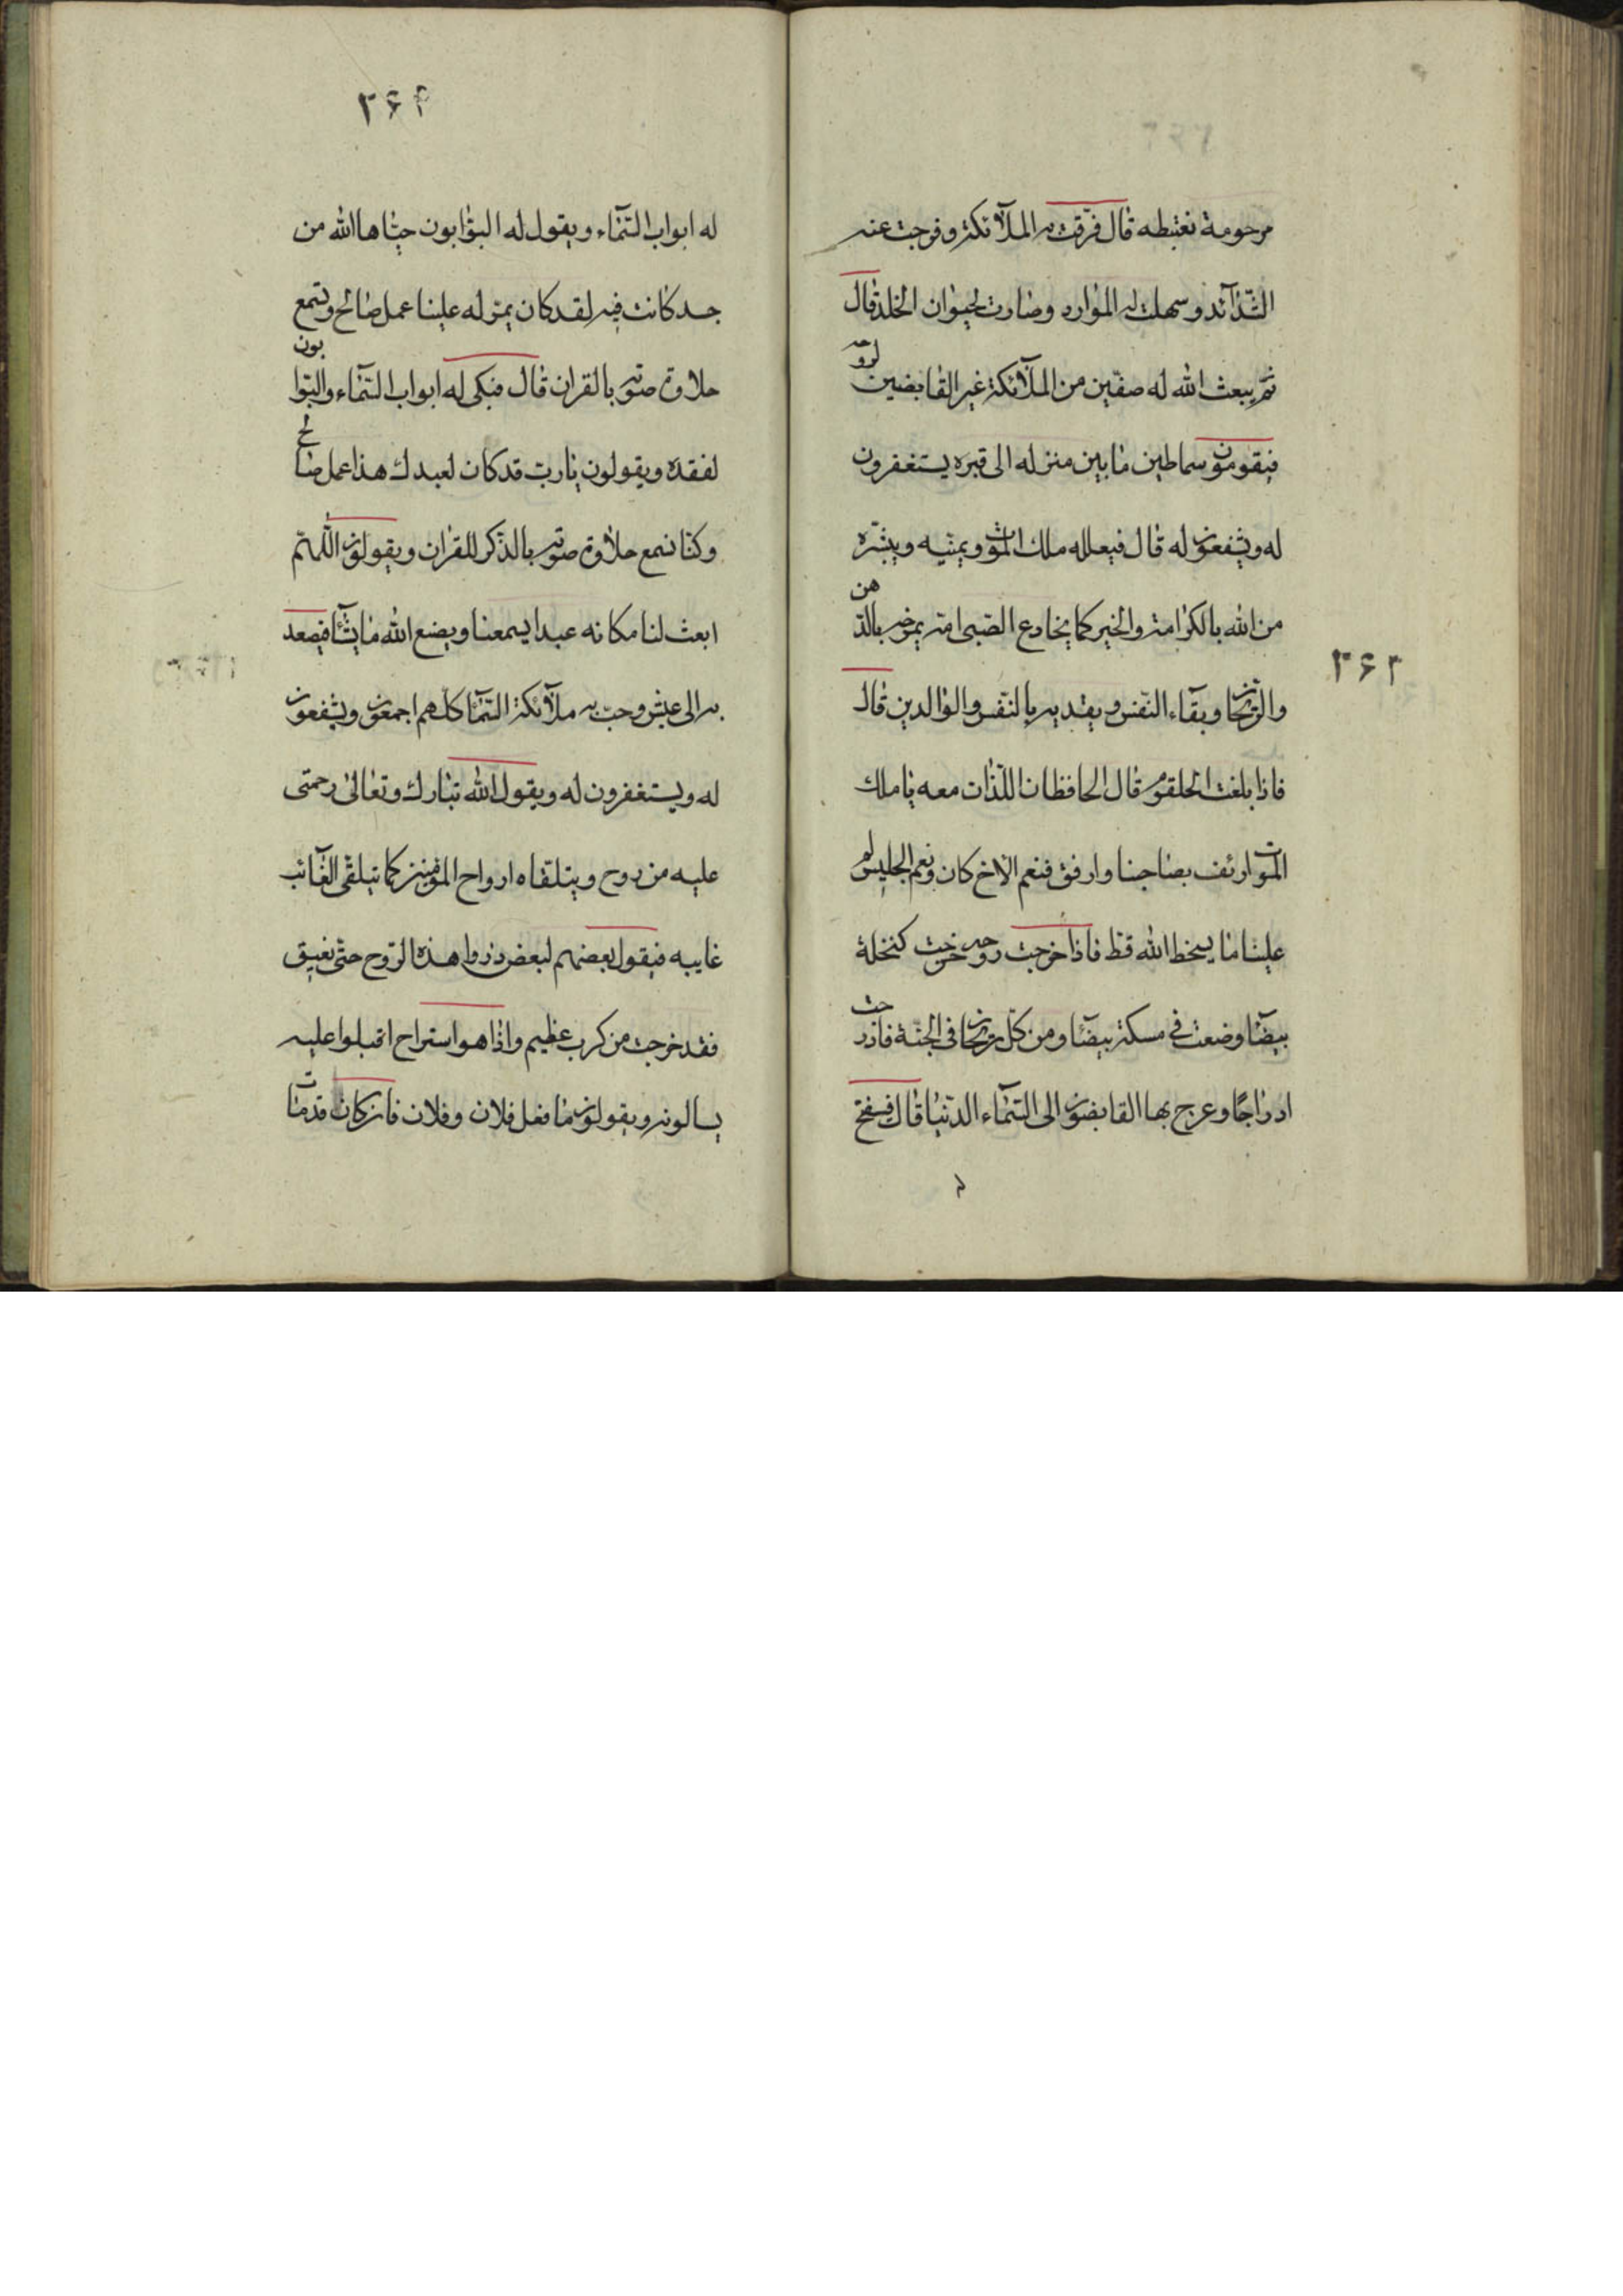 مرحومة نغتبطه قال فرّقت به الملآئكة وفرجت عنه
الشّدآئد وسهلت له الموارد وصارت لحيوان الخلد قال
ثمّ يبعث الله له صفّين من الملآئكة غير القابضين لروحه
فيقومون سماطين ما بين منزله الى قبره يستغفرون
له ويشفعون له قال فيعلله ملك الموت ويمنّيه ويبشّره
من الله بالكرامة والخير كما يخادع الصّبى امّه تمرخه بالدّهن
والرّيحان وبقآء النّفس ويفديه بالنّفس والوالدين قال
فاذا بلغت الحلقوم قال الحافظان اللّذان معه يا ملك
الموت ارئف بصاحبنا وارفق فنعم الاخ كان ونعم الجليس لم
علينا ما يسخط الله قط فاذا خرجت روحه خرجت كنخلة
بيضآء وضعت فى مسكة بيضآء ومن كلّ ريحان فى الجنّة فادرجت
ادراجًا وعرج بها القابضون الى السّمآء الدّنيا قال فيفتح
۳۶۳
۳۶۴
له ابواب السّمآء ويقول له البوّابون حيّاها الله من
جسد كانت فيه لقد كان يمرّ له علينا عمل صالح ونسمع
حلاوة صوته بالقران قال فبكى له ابواب السّمآء والبوّابون
لفقده ويقولون يا ربّ قد كان لعبدك هذا عمل صالح
وكنّا نسمع حلاوة صوته بالذّكر للقران ويقولون اللّهمّ
ابعث لنا مكانه عبدا يسمعنا ويصنع الله ما يشآء فيصعد
به الى عيش رحبّ به ملآئكة السّمآء كلّهم اجمعون ويشفعون
له ويستغفرون له ويقول الله تبارك وتعالى رحمتى
عليه من روح ويتلقاه ارواح المؤمنين كما يتلقى الغآئب
غايبه فيقول بعضهم لبعض ذروا هذه الرّوح حتّى تفيق
فقد خرجت من كرب عظيم واذا هو استراح اقبلوا عليه
يسالونه ويقولون ما فعل فلان وفلان فان كان قد مات